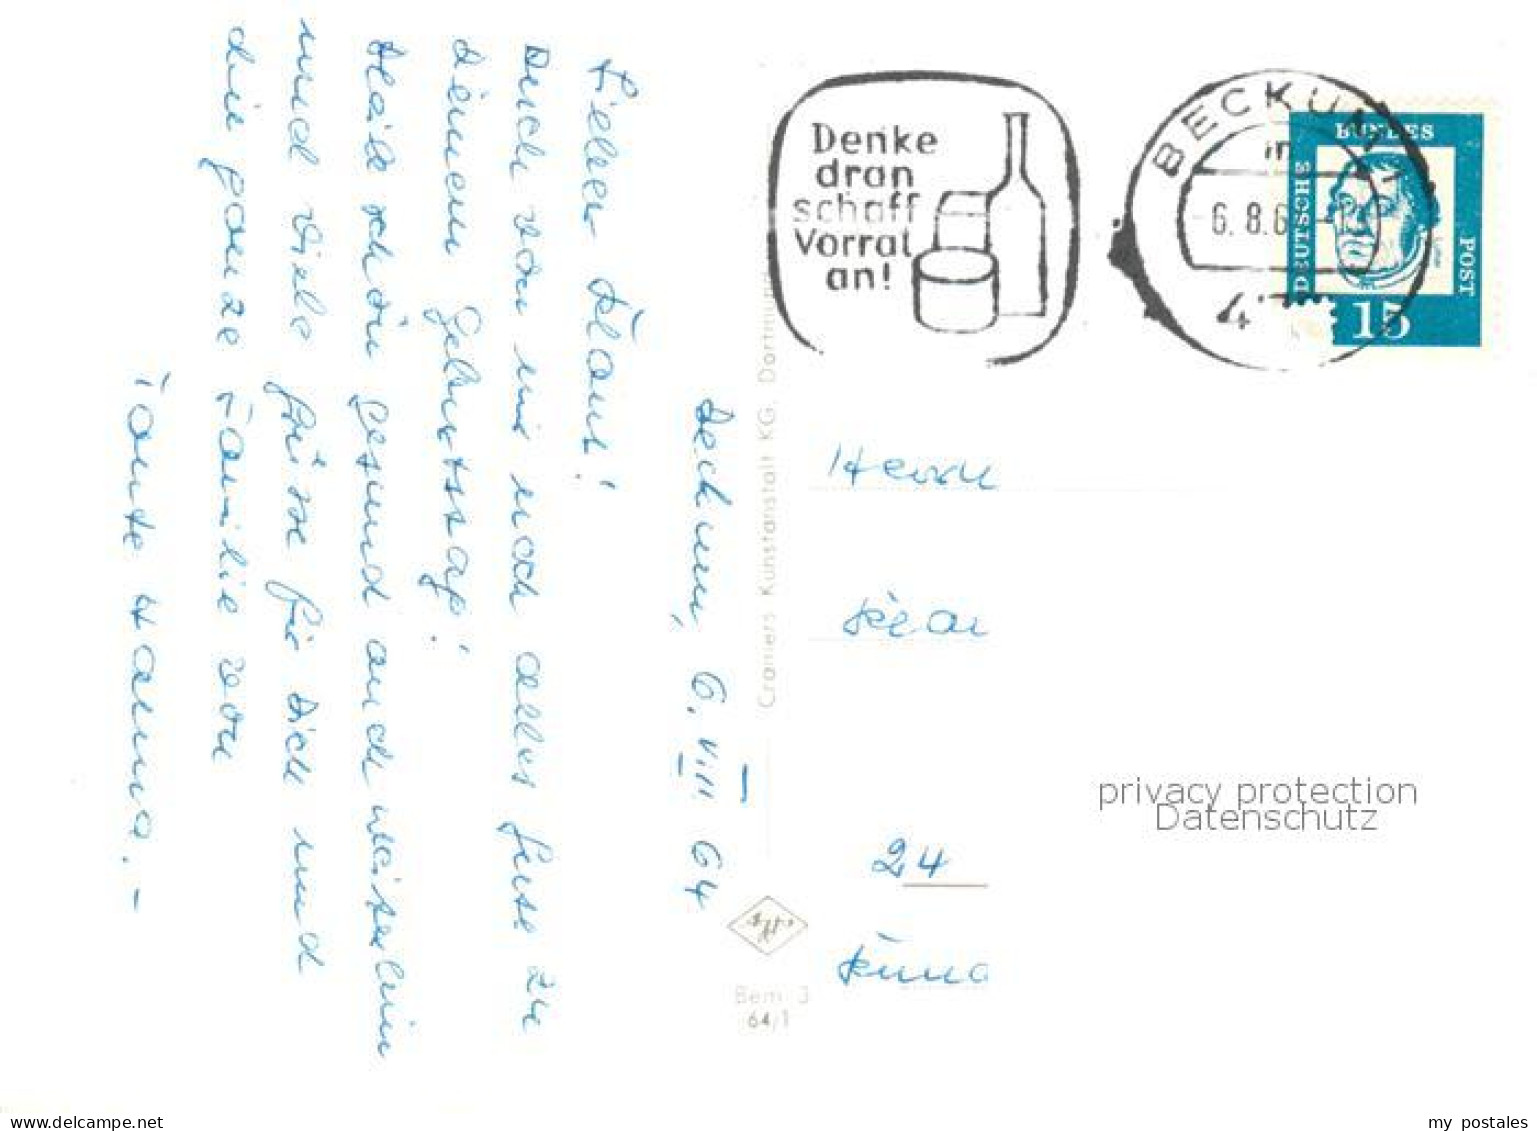 Beckum, 6. VIII 64
Lieber Klaus!
Auch von mir noch alles Gute zu
Deinem Geburtstag!
Bleib schön gesund auch weiterhin
und viele Grüsse für Dich und
die ganze Familie von
Tante Hanna. –
Cramers Kunstanstalt KG. Dortmund
Bem 3
64/1
Denke
dran
schaff
Vorrat
an!
BECKUM
6. 8. 6
DEUTSCHE
BUNDES
POST
Luther
15
Herrn
24
privacy protection
Datenschutz
my postales
www.delcampe.net